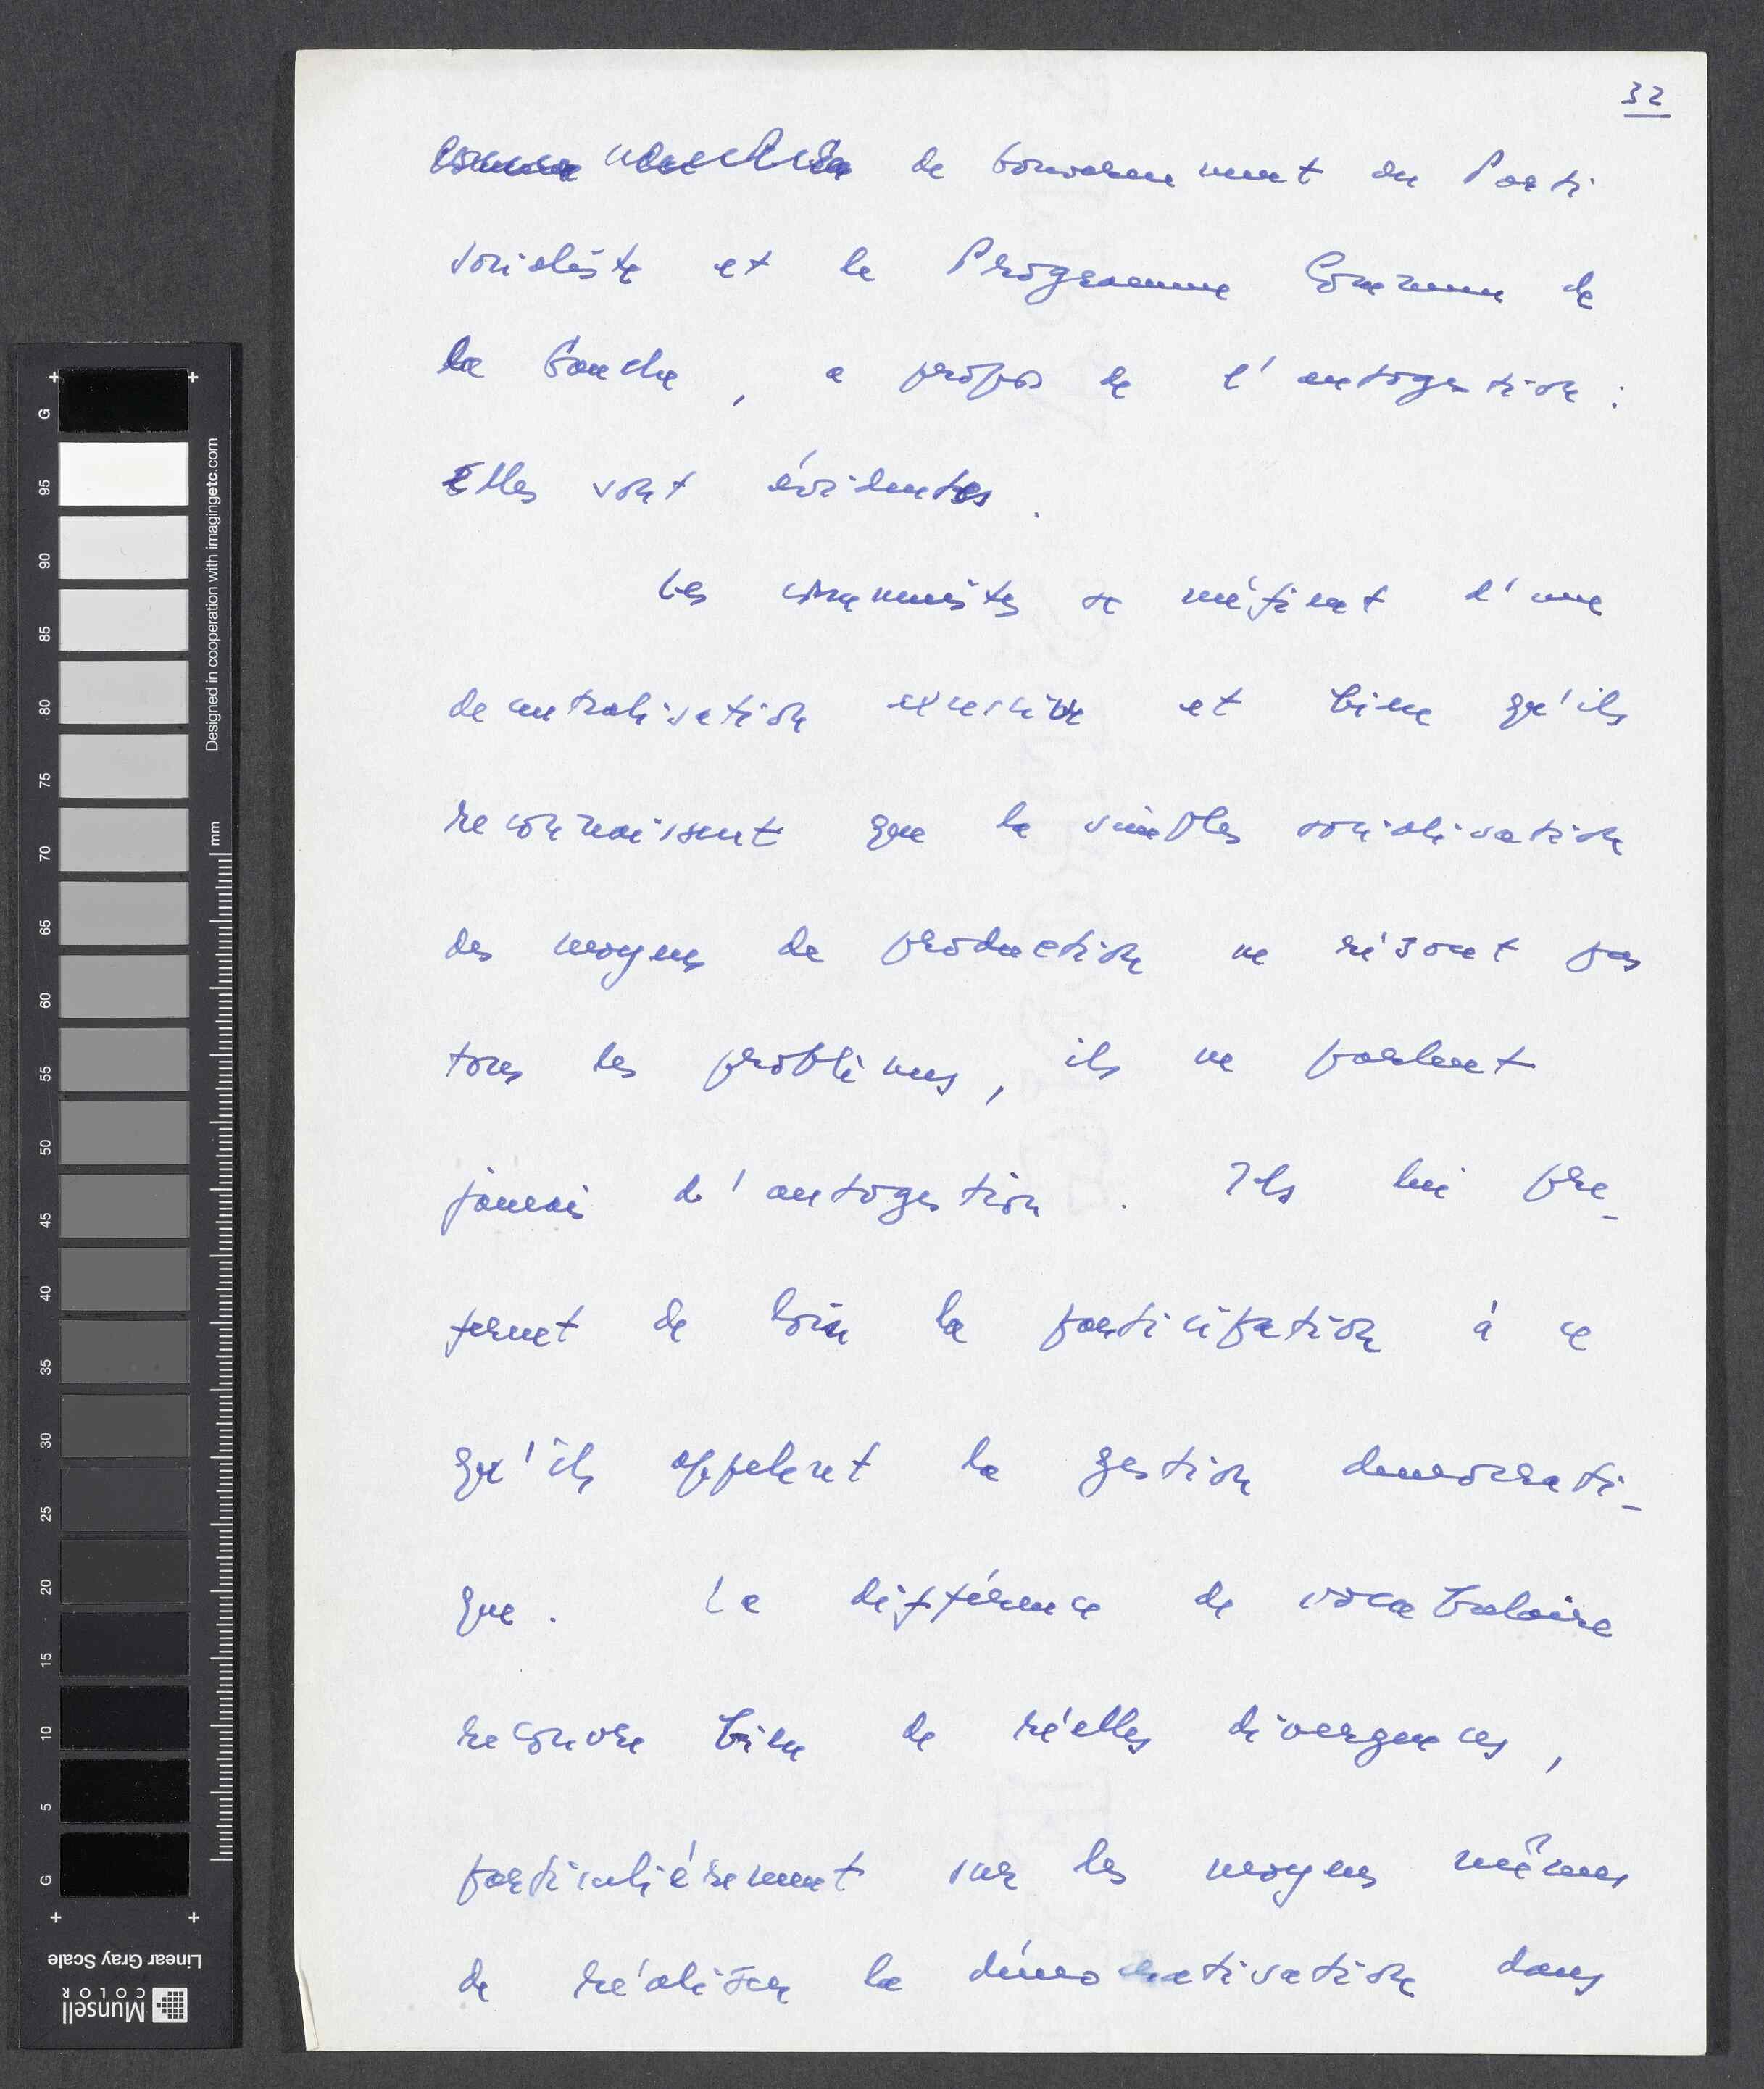 32
de Gouvernement du Parti
socialiste et le Programme Commun de
la Gauche, a propos de l'autogestion :
Elles sont évidentes.
Les communistes se méfient d'une
decentralisation excessive et bien qu'ils
reconnaissent que la simples socialisation
des moyens de production ne résout pas
tous les problèmes, ils ne parlent
jamais d'autogestion. Ils lui pre-
ferent de loin la participation à ce
qu'ils appelent la gestion democrati-
que. La différence de vocabulaire
recouvre bien de réelles divergences,
particulièrement sur les moyens mêmes
de réaliser la démocratisation dans
G
95
90
85
80
75
70
65
60
55
50
45
40
35
30
25
20
15
10
5
G
mm
Designed in cooperation with imagingetc.com
Linear Gray Scale
Munsell
COLOR